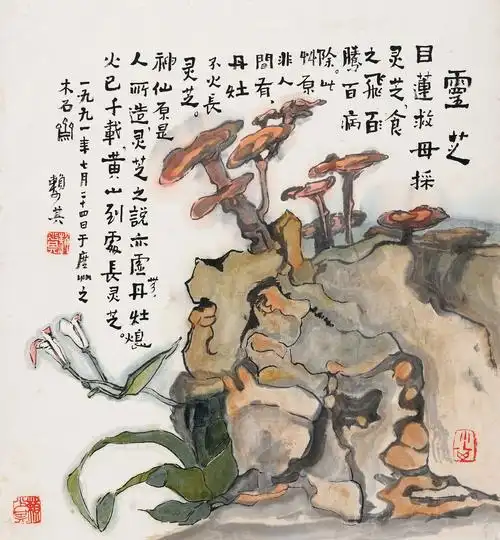 靈芝
目蓮救母採
灵芝，食
之飛百
騰百病
除。此
艸原
非人
間有，
丹灶
不火長
灵芝。
神仙原是
人所造，灵芝之說亦虛無丹灶熄
火已千載，黄山到處長灵芝。
一九九一年七月二十四日于廣州之
木石齋
賴少其